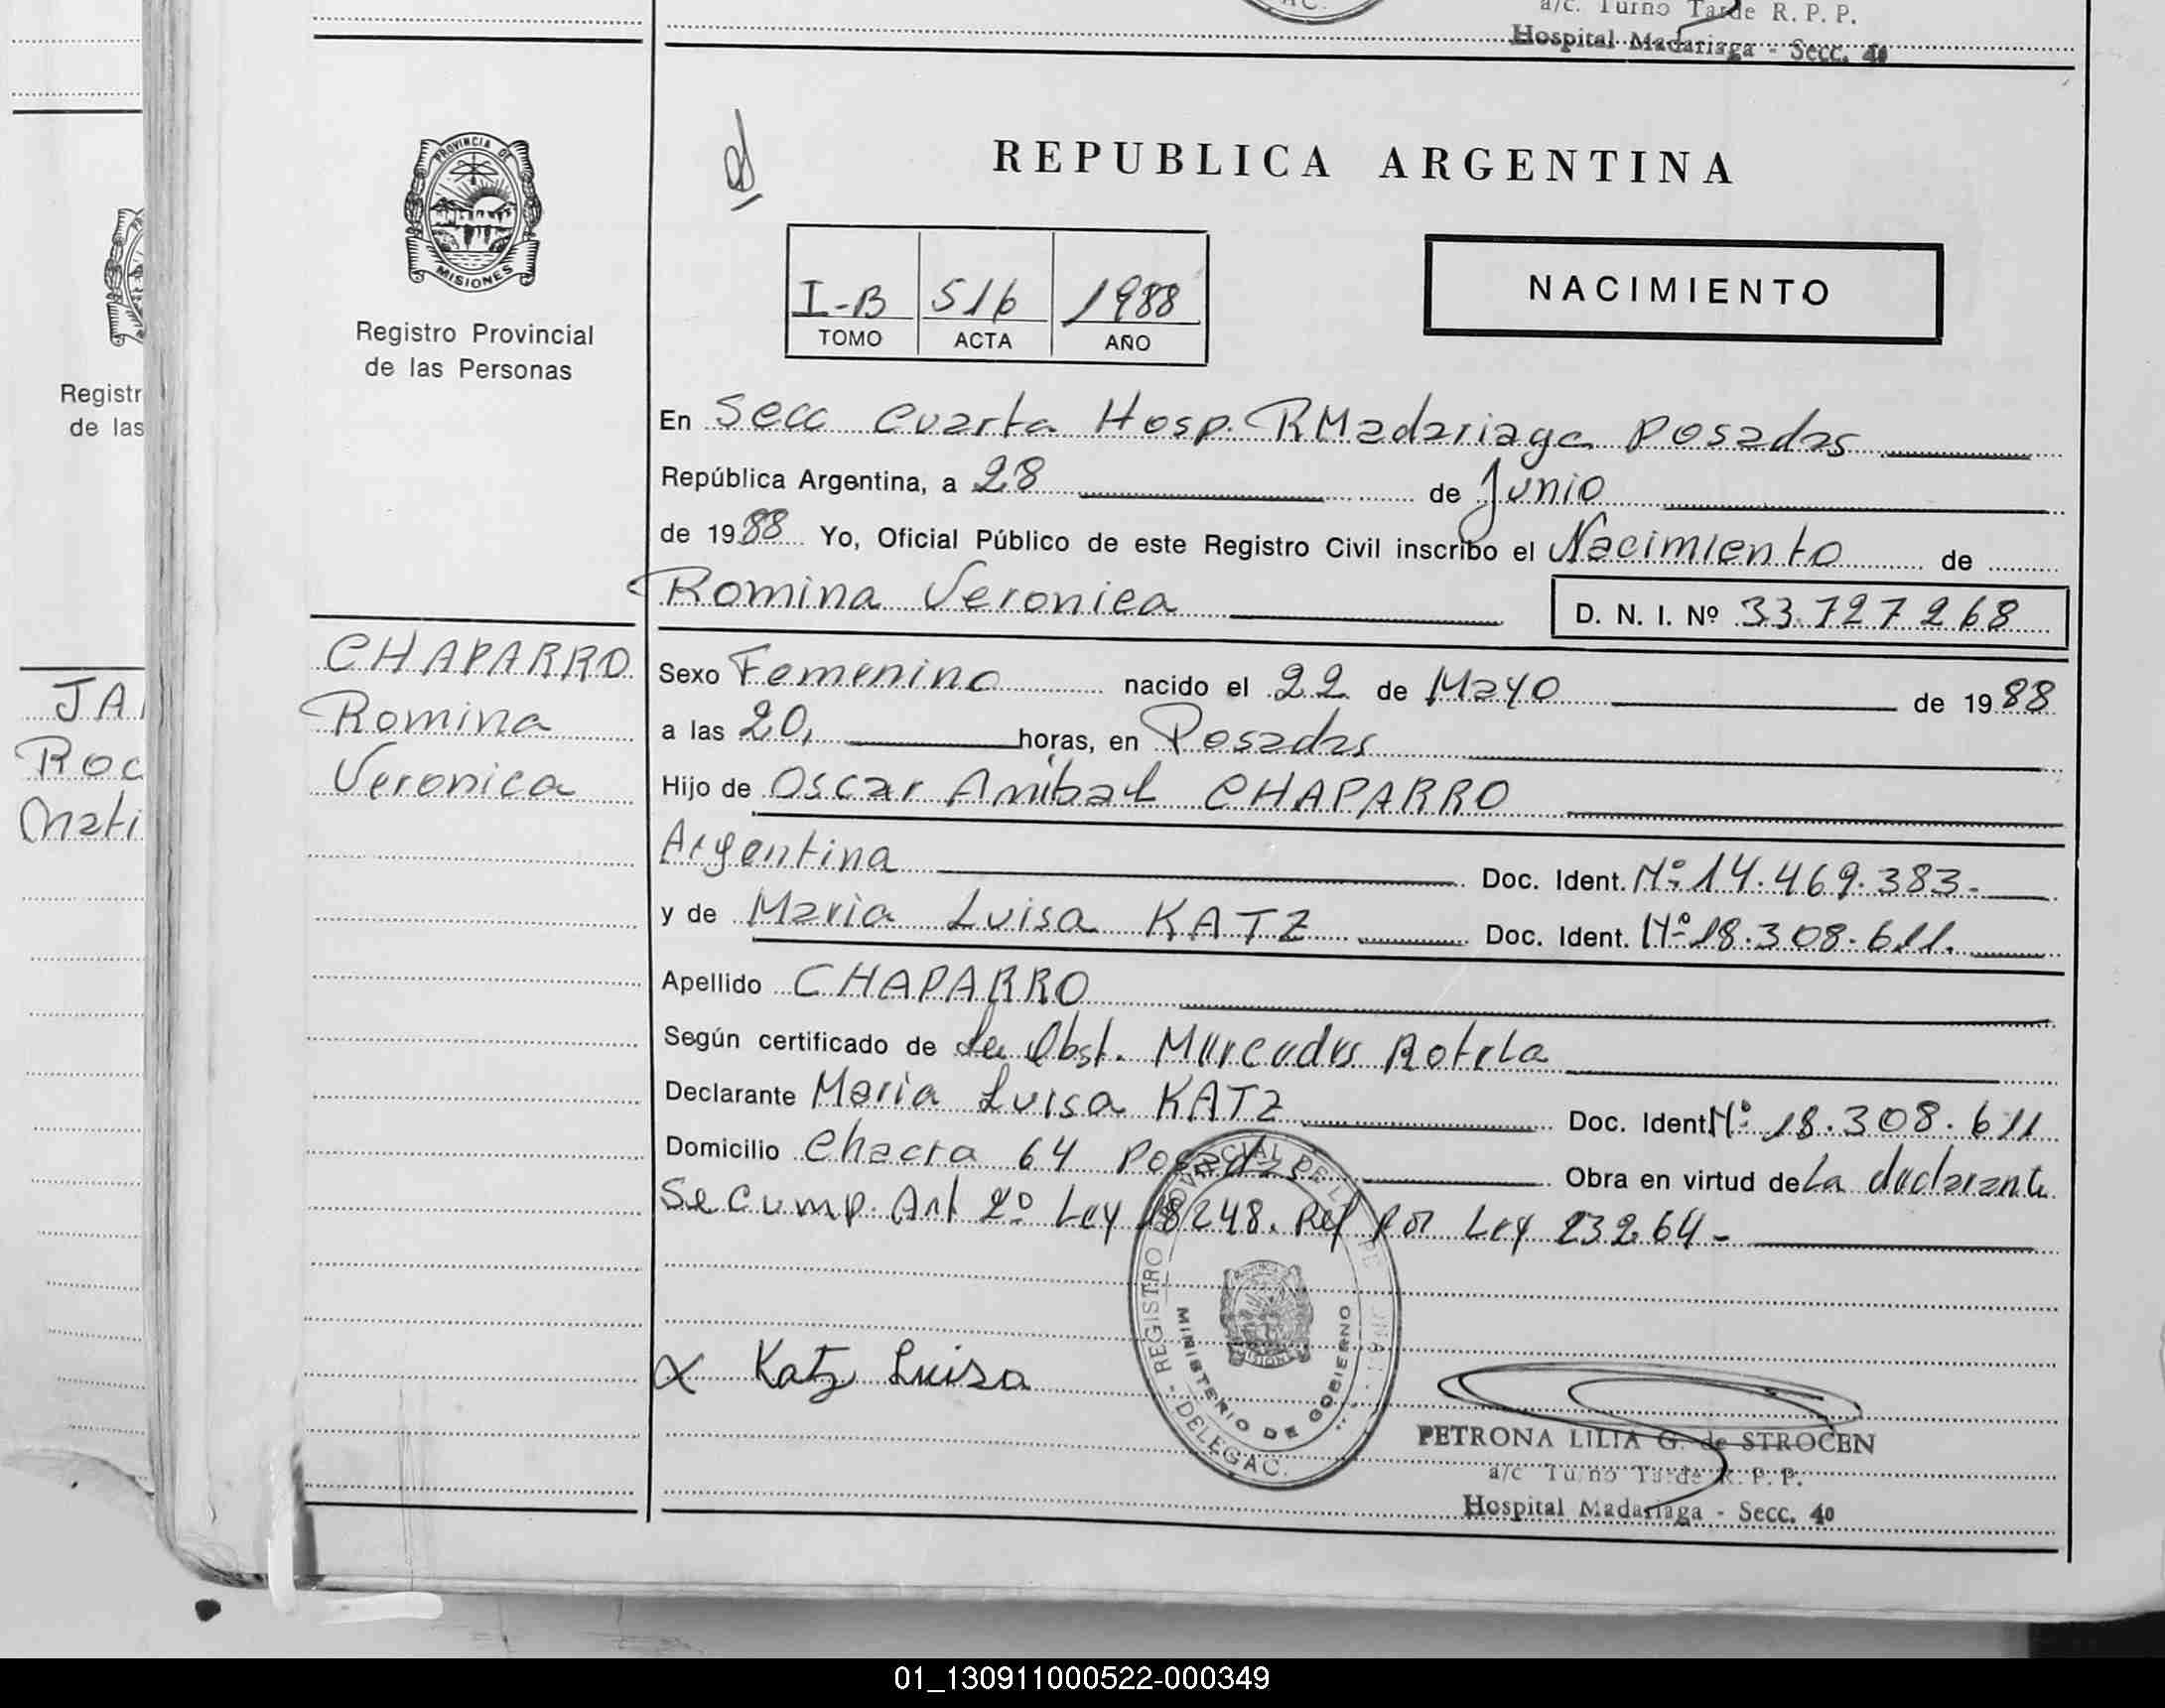 a/c. Turno Tarde R. P. P.
Hospital Madariaga - Secc. 4º
PROVINCIA DE
MISIONES
Registro Provincial
de las Personas
REPUBLICA ARGENTINA
I-B 516 1988
TOMO ACTA AÑO
NACIMIENTO
En Secc Cuarta Hosp. RMadariaga Posadas
República Argentina, a 28 de Junio
de 1988 Yo, Oficial Público de este Registro Civil inscribo el Nacimiento de
Romina Veronica D. N. I. Nº 33.727268
Sexo Femenino nacido el 22 de Mayo de 1988
a las 20, horas, en Posadas
Hijo de Oscar Anibal CHAPARRO
Argentina Doc. Ident. Nº 14.469.383.-
y de Maria Luisa KATZ Doc. Ident. Nº 18.308.611.
Apellido CHAPARRO
Según certificado de la Obst. Mercedes Rotela
Declarante Maria Luisa KATZ Doc. Ident Nº 18.308.611
Domicilio Chacra 64 Posadas Obra en virtud de La declarante
Se Cump. Art 2º Ley 18248. Ref por Ley 23264-
Katz Luisa
REGISTRO PROVINCIAL DE L
MINISTERIO DE GOBIERNO
DELEGAC.
PETRONA LILIA G. de STROCEN
a/c Turno Tarde R. P. P.
Hospital Madariaga - Secc. 4º
CHAPARRO
Romina
Veronica
Registr
de las
JA
Roc
Mati
01_130911000522-000349